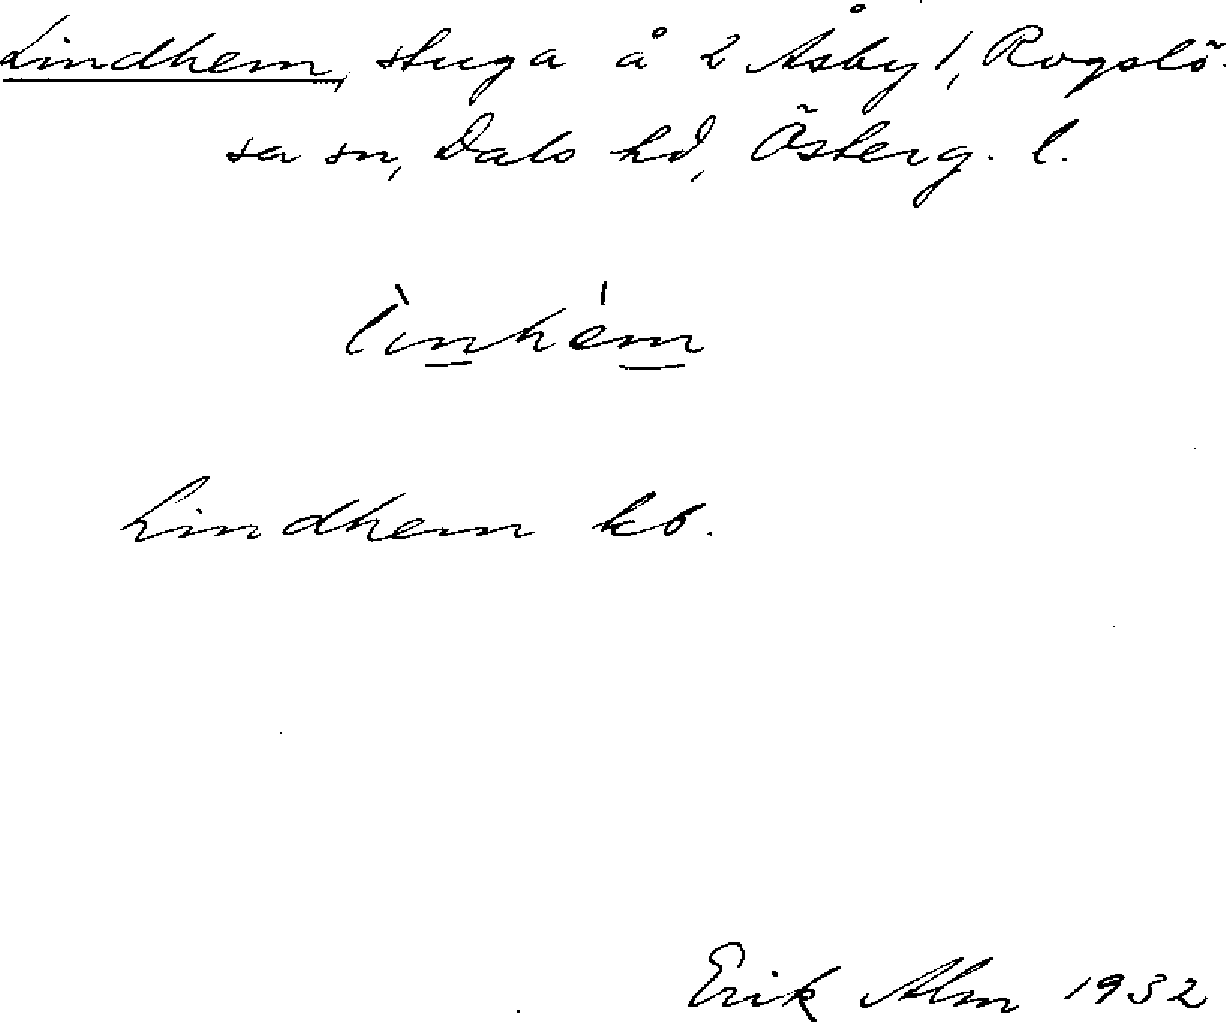 Lindhem, stuga å 2 Åsby 1, Rogslö-
sa sn, Dals hd, Österg. l.
lìnhém
Lindhem kb.
Erik Alm 1932